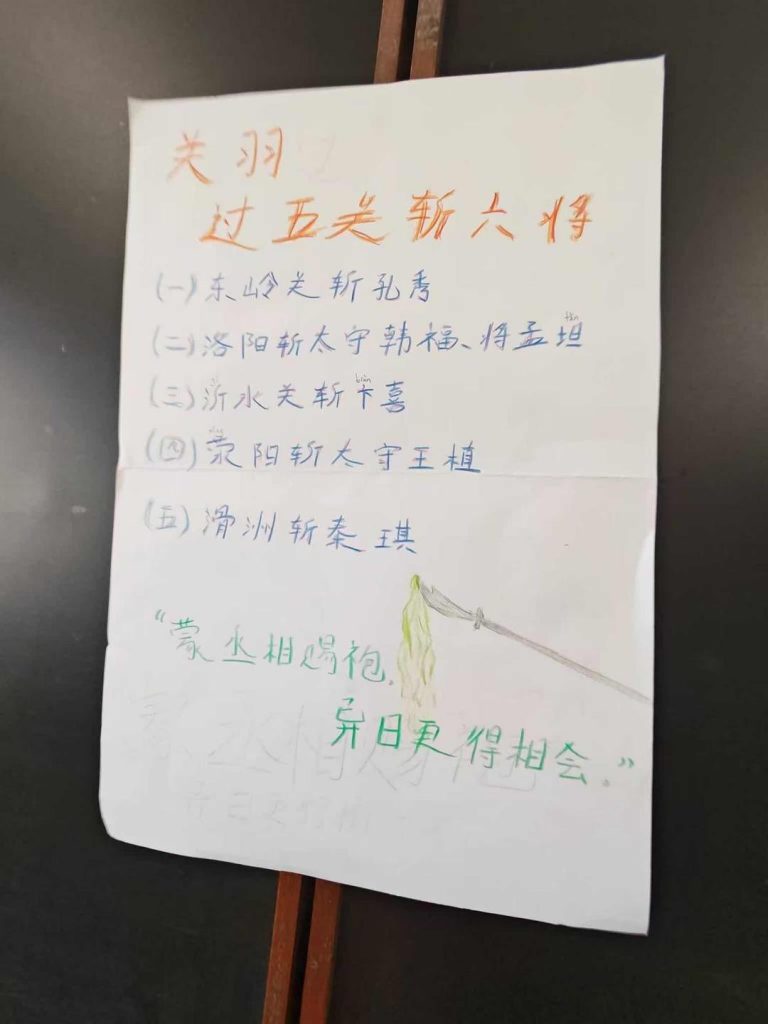 关羽
过五关斩六将
(一)东岭关斩孔秀
(二)洛阳斩太守韩福、将孟坦
(三)沂水关斩卞喜
(四)荥阳斩太守王植
(五)滑洲斩秦琪
“蒙丞相赐袍.
异日更得相会.”